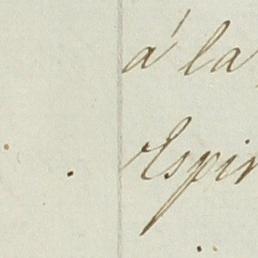 á la
Espir